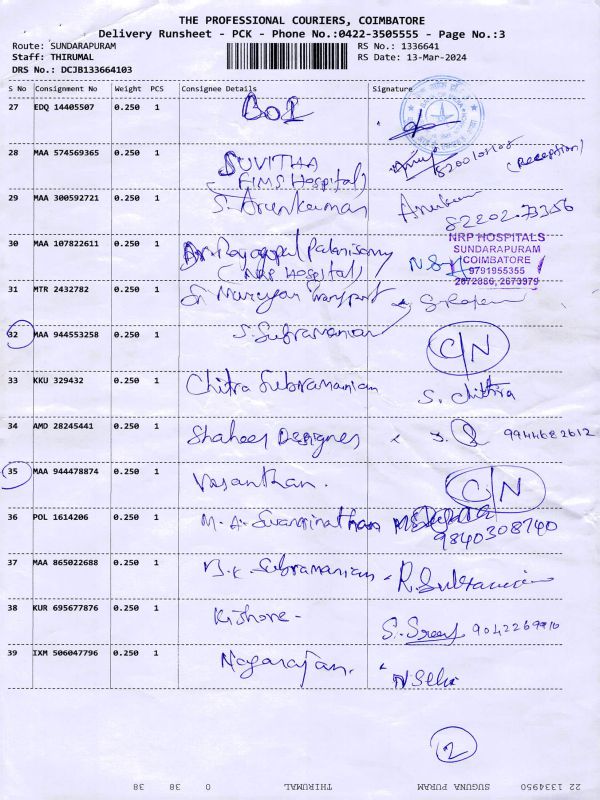 THE PROFESSIONAL COURIERS, COIMBATORE
Delivery Runsheet - PCK - Phone No.:0422-3505555 - Page No.:3
Route: SUNDARAPURAM RS No.: 1336641
Staff: THIRUMAL RS Date: 13-Mar-2024
DRS No.: DCJB133664103
S No Consignment No Weight PCS Consignee Details Signature
27 EDQ 14405507 0.250 1 BOI
28 MAA 574569365 0.250 1 SUVITHA
(FIMS Hospitals) (Reception)
29 MAA 300592721 0.250 1 S. Arunkumar
30 MAA 107822611 0.250 1 Dr. Rajagopal Palanisamy
(NRP Hospital)
NRP HOSPITALS
SUNDARAPURAM
COIMBATORE
9791955355
2672886, 2673979
31 MTR 2432782 0.250 1 Sri Narayan Transport
32 MAA 944553258 0.250 1 S. Subramanian C/N
33 KKU 329432 0.250 1 Chitra Subramanian S. Chithra
34 AMD 28245441 0.250 1 Shahees Designes 9944682612
35 MAA 944478874 0.250 1 Vasanthan. C/N
36 POL 1614206 0.250 1 M. A. Swaminathan
9840308740
37 MAA 865022688 0.250 1 B.K. Subramaniam R. Subramanian
38 KUR 695677876 0.250 1 Kishore - S. Sreey 9042269910
39 IXM 506047796 0.250 1 Nagarajan. N Selvi
2
22 1334950 SUGUNA PURAM THIRUMAL 0 38 38